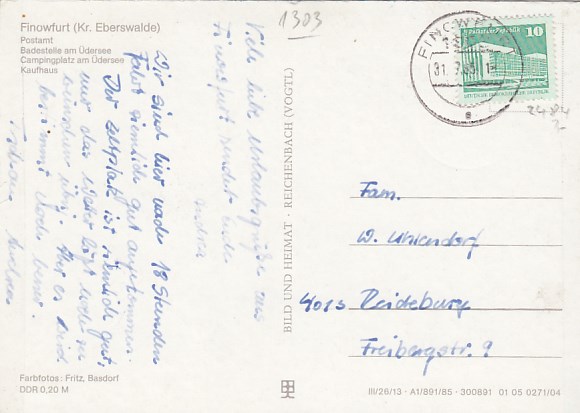 Finowfurt (Kr. Eberswalde)
Postamt
Badestelle am Üdersee
Campingplatz am Üdersee
Kaufhaus
1303
FINOWFURT
31. 7.
s
10
DEUTSCHE DEMOKRATISCHE REPUBLIK
2484
Viele liebe Urlaubsgrüße aus
Finowfurt sendet euch
Andrea
Wir sind hier nach 18 Stunden
Fahrt ziemlich gut angekommen.
Der Zeltplatz ist ziemlich gut,
nur das Wetter läßt noch zu
wünschen übrig. Aber es wird
bestimmt noch besser.
BILD UND HEIMAT · REICHENBACH (VOGTL)
Fam.
W. Uhlendorf
4013 Reideburg
Freibergstr. 9
Farbfotos: Fritz, Basdorf
DDR 0,20 M
III/26/13 · A1/891/85 · 300891 01 05 0271/04